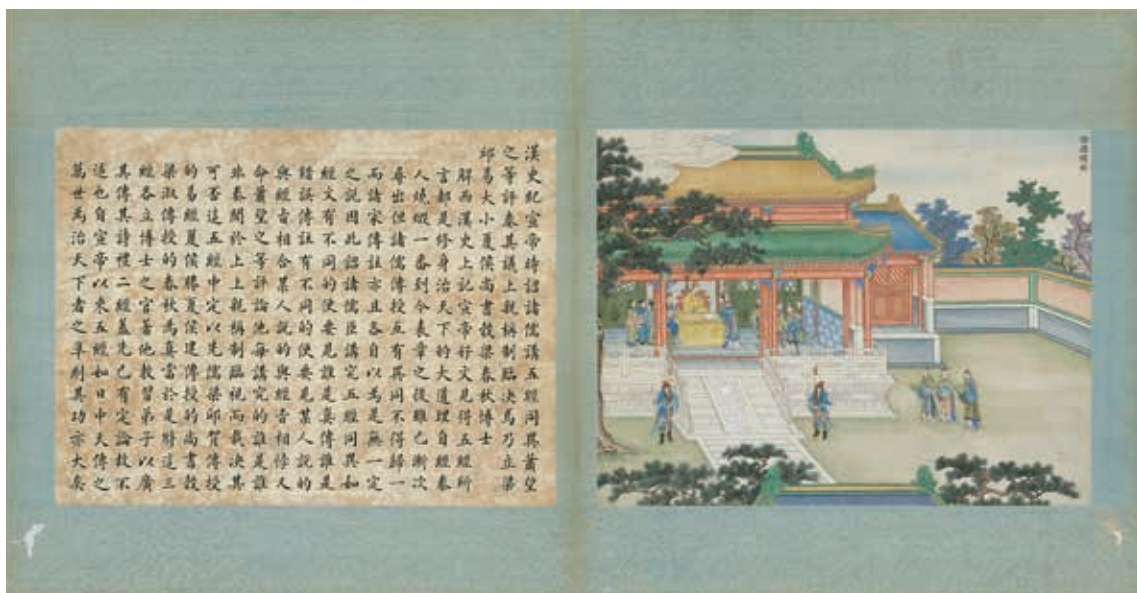 漢史紀宣帝時詔諸儒講五經同異蕭望
之等評奏其議上親稱制臨决焉乃立梁
邱易大小夏侯尚書穀梁春秋博士
解西漢史上記宣帝好文見得五經所
言都是修身治天下的大道理自經秦
人燒燬一番到今表章之後雖已漸次
尋出但諸儒傳授互有異同不得歸一
而諸家傳註亦且各自以為是無一定
之說因此詔諸儒臣講究五經同異如
經文有不同的便要見誰是真傳誰是
錯誤傳註有不同的便要見某人說的
與經旨相合某人說的與經旨相悖又
命蕭望之等評論他每講究的誰是誰
非奏聞於上上親稱制臨視而裁决其
可否這五經中定以先儒梁邱賀傳授
的易經夏侯勝夏侯建傳授的尚書穀
梁淑傳授的春秋為真當於是將這三
經各立博士之官著他教習弟子以廣
其傳其詩禮二經蓋先已有定論故不
述也自宣帝以來五經如日中天傳之
萬世為治天下者之準則其功亦大矣